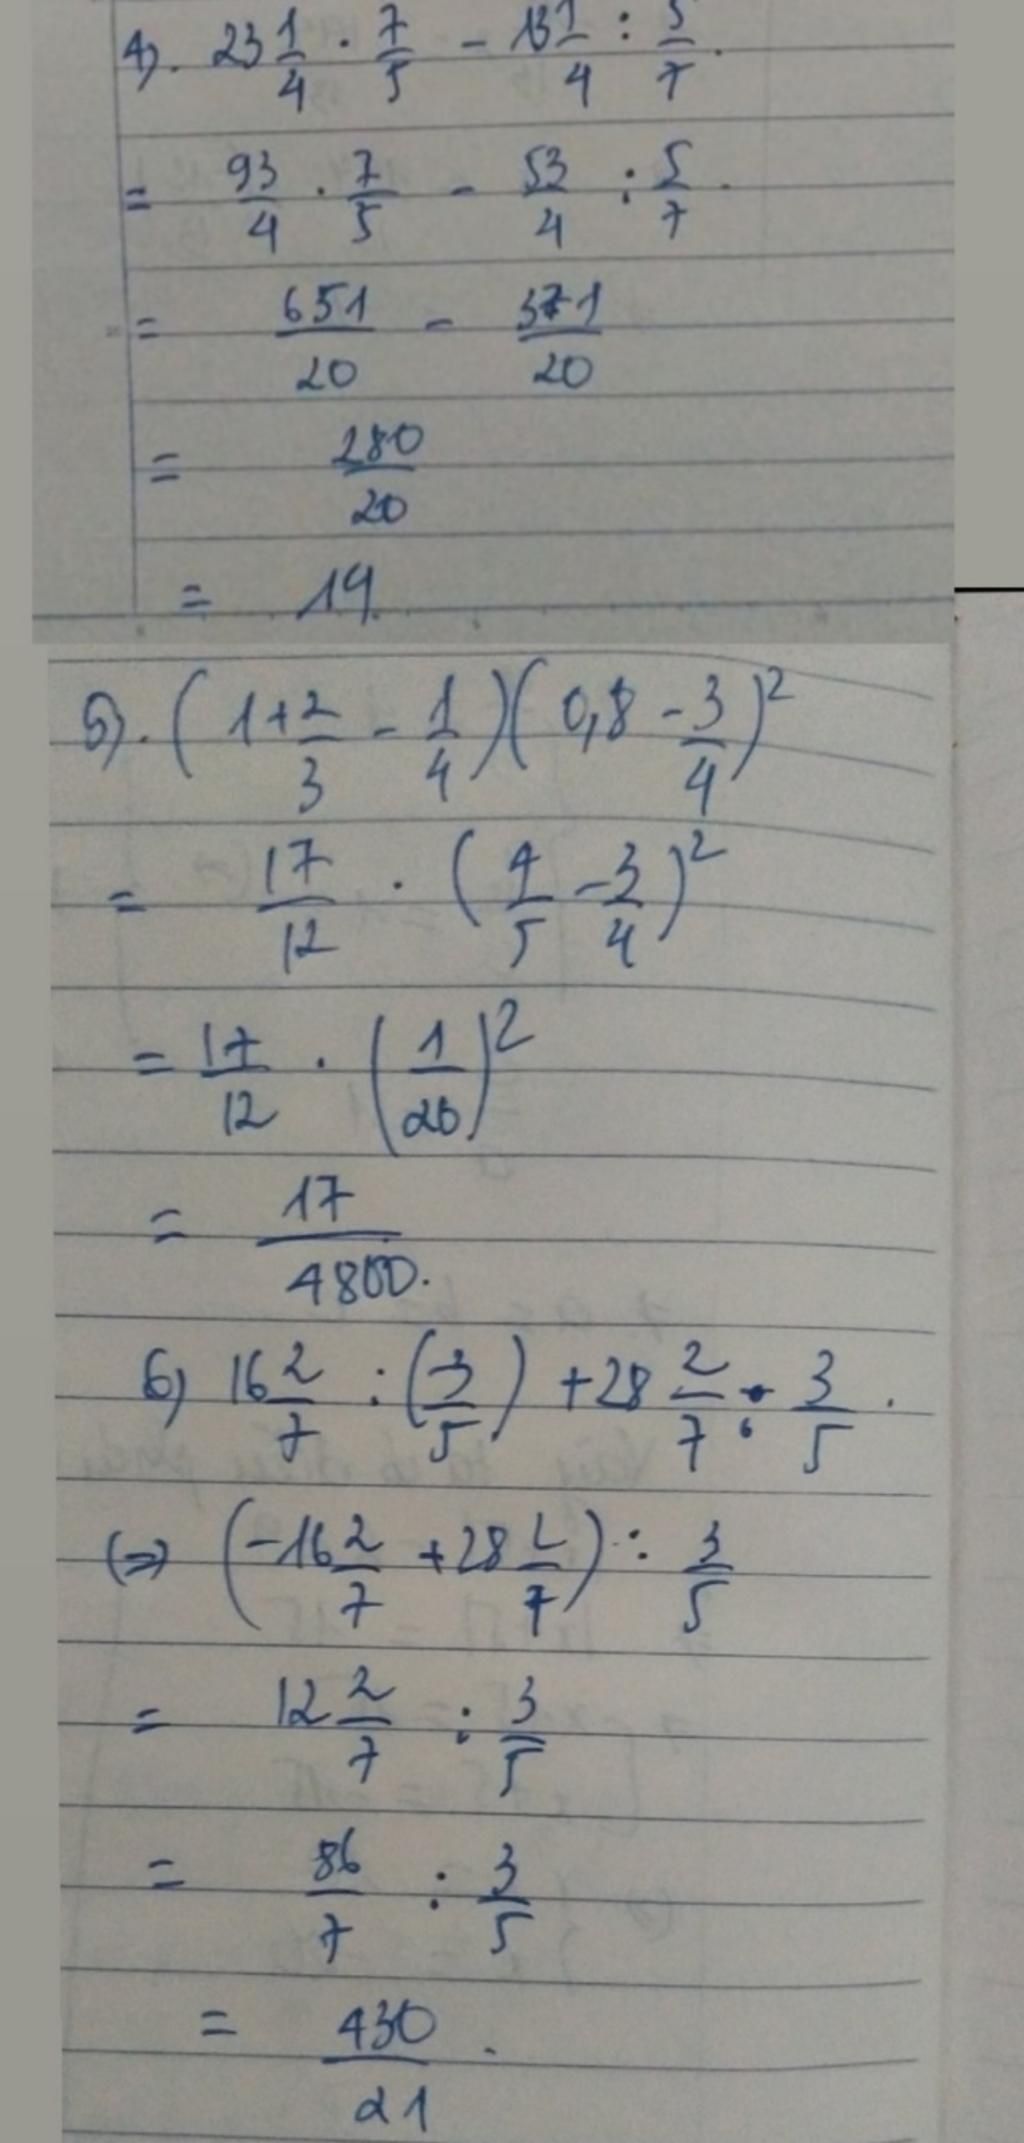 4). 23 1/4 . 7/5 - 13 1/4 : 5/7.
= 93/4 . 7/5 - 53/4 : 5/7.
= 651/20 - 371/20
= 280/20
= 14.
5). (1 + 2/3 - 1/4)(0,8 - 3/4)²
= 17/12 . (4/5 - 3/4)²
= 17/12 . (1/20)²
= 17/4800.
6) 16 2/7 : (3/5) + 28 2/7 : 3/5.
(=) (-16 2/7 + 28 2/7) : 3/5
= 12 2/7 : 3/5
= 86/7 : 3/5
= 430/21.